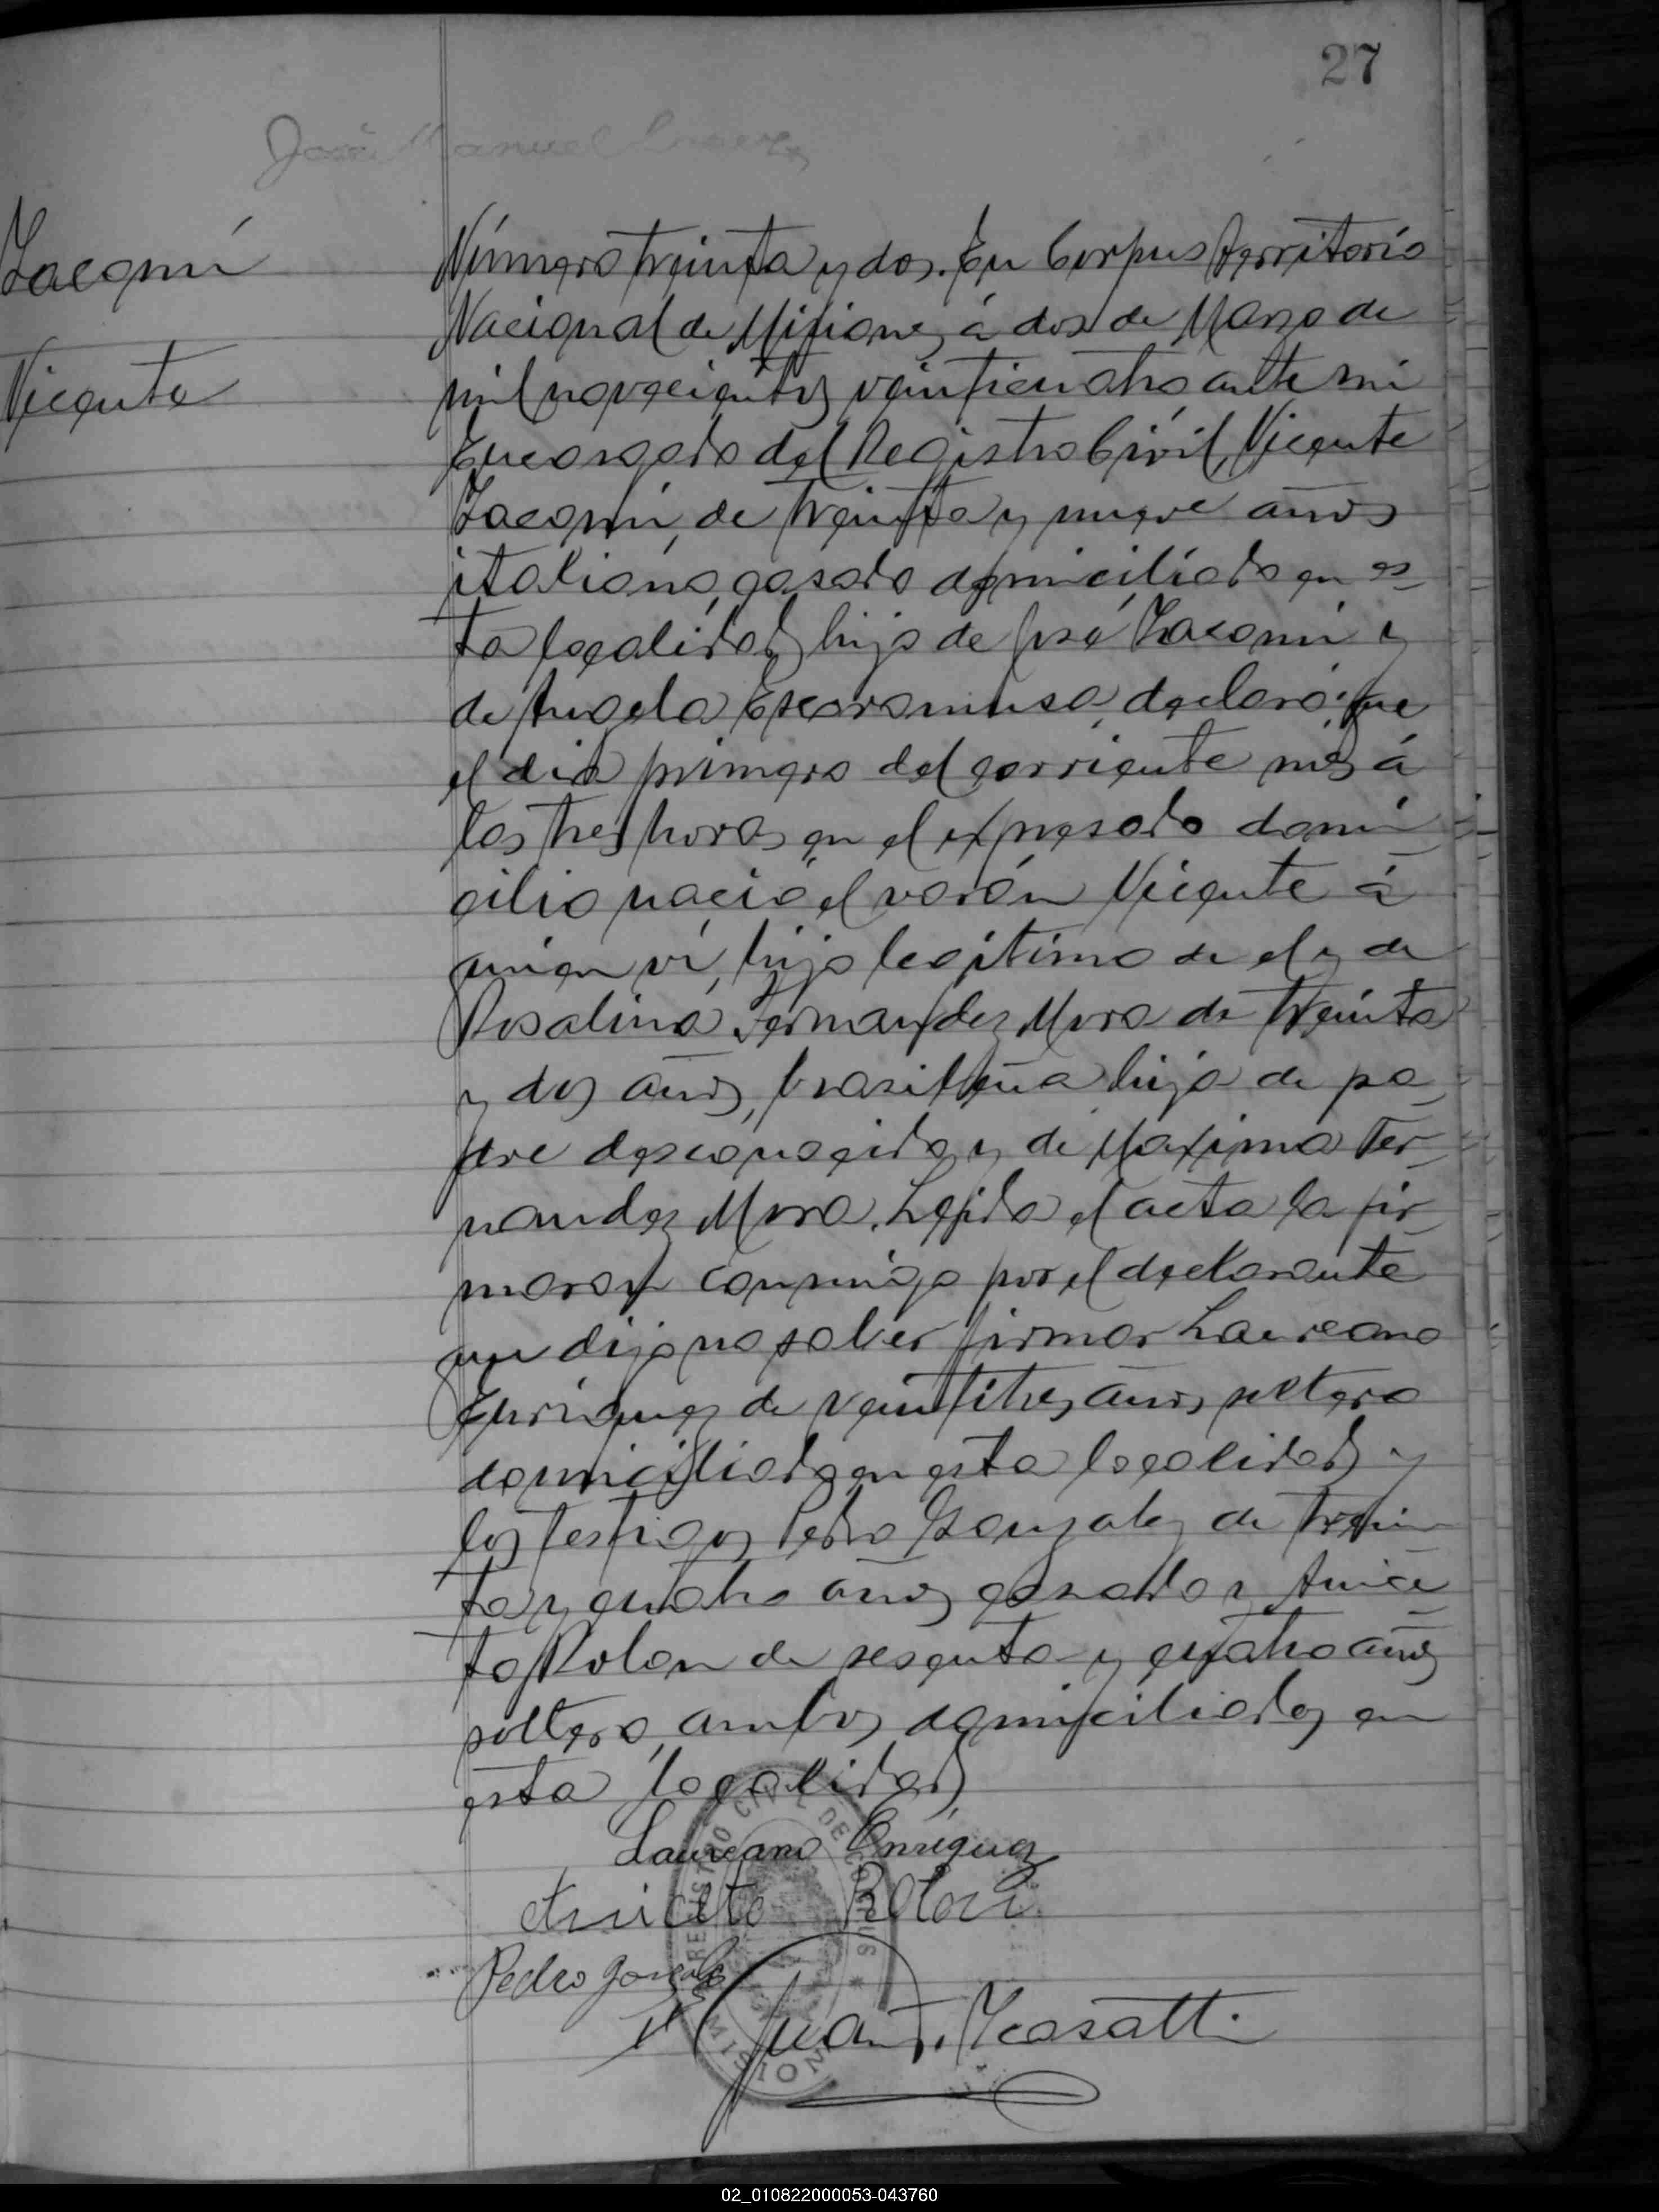 27
José Manuel
Zacomú
Vicente
Número treinta y dos. En Corpus Territorio
Nacional de Misiones, á dos de Marzo de
mil novecientos veinticuatro ante mi
Encargado del Registro Civil, Vicente
Zacomú, de treinta y nueve años
italiano, casado domiciliado en es-
ta localidad, hijo de José Zacomú y
de Angela Escaramusa, declaró: que
el dia primero del corriente mes á
las tres horas en el expresado domi-
cilio nació el varón Vicente á
quien ví, hijo legítimo de el y de
Rosalina Fernandez Mora de treinta
y dos años, brasileña hija de pa-
dre desconocido y de Maxima Fer-
nandez Mora. Leida el acta la fir-
maron conmigo por el declarante
que dijo no saber firmar Laureano
Enriquez de veintitres años, soltero
domiciliado en esta localidad y
los testigos Pedro Gonzalez de trein-
ta y cuatro años casado y Anice-
to Rolon de sesenta y cuatro años
soltero, ambos domiciliados en
esta localidad,
Laureano Enriquez
Aniceto Rolon
Pedro Gonzalez
Juan
REGISTRO CIVIL DE CORPUS * MISIONES
02_010822000053-043760